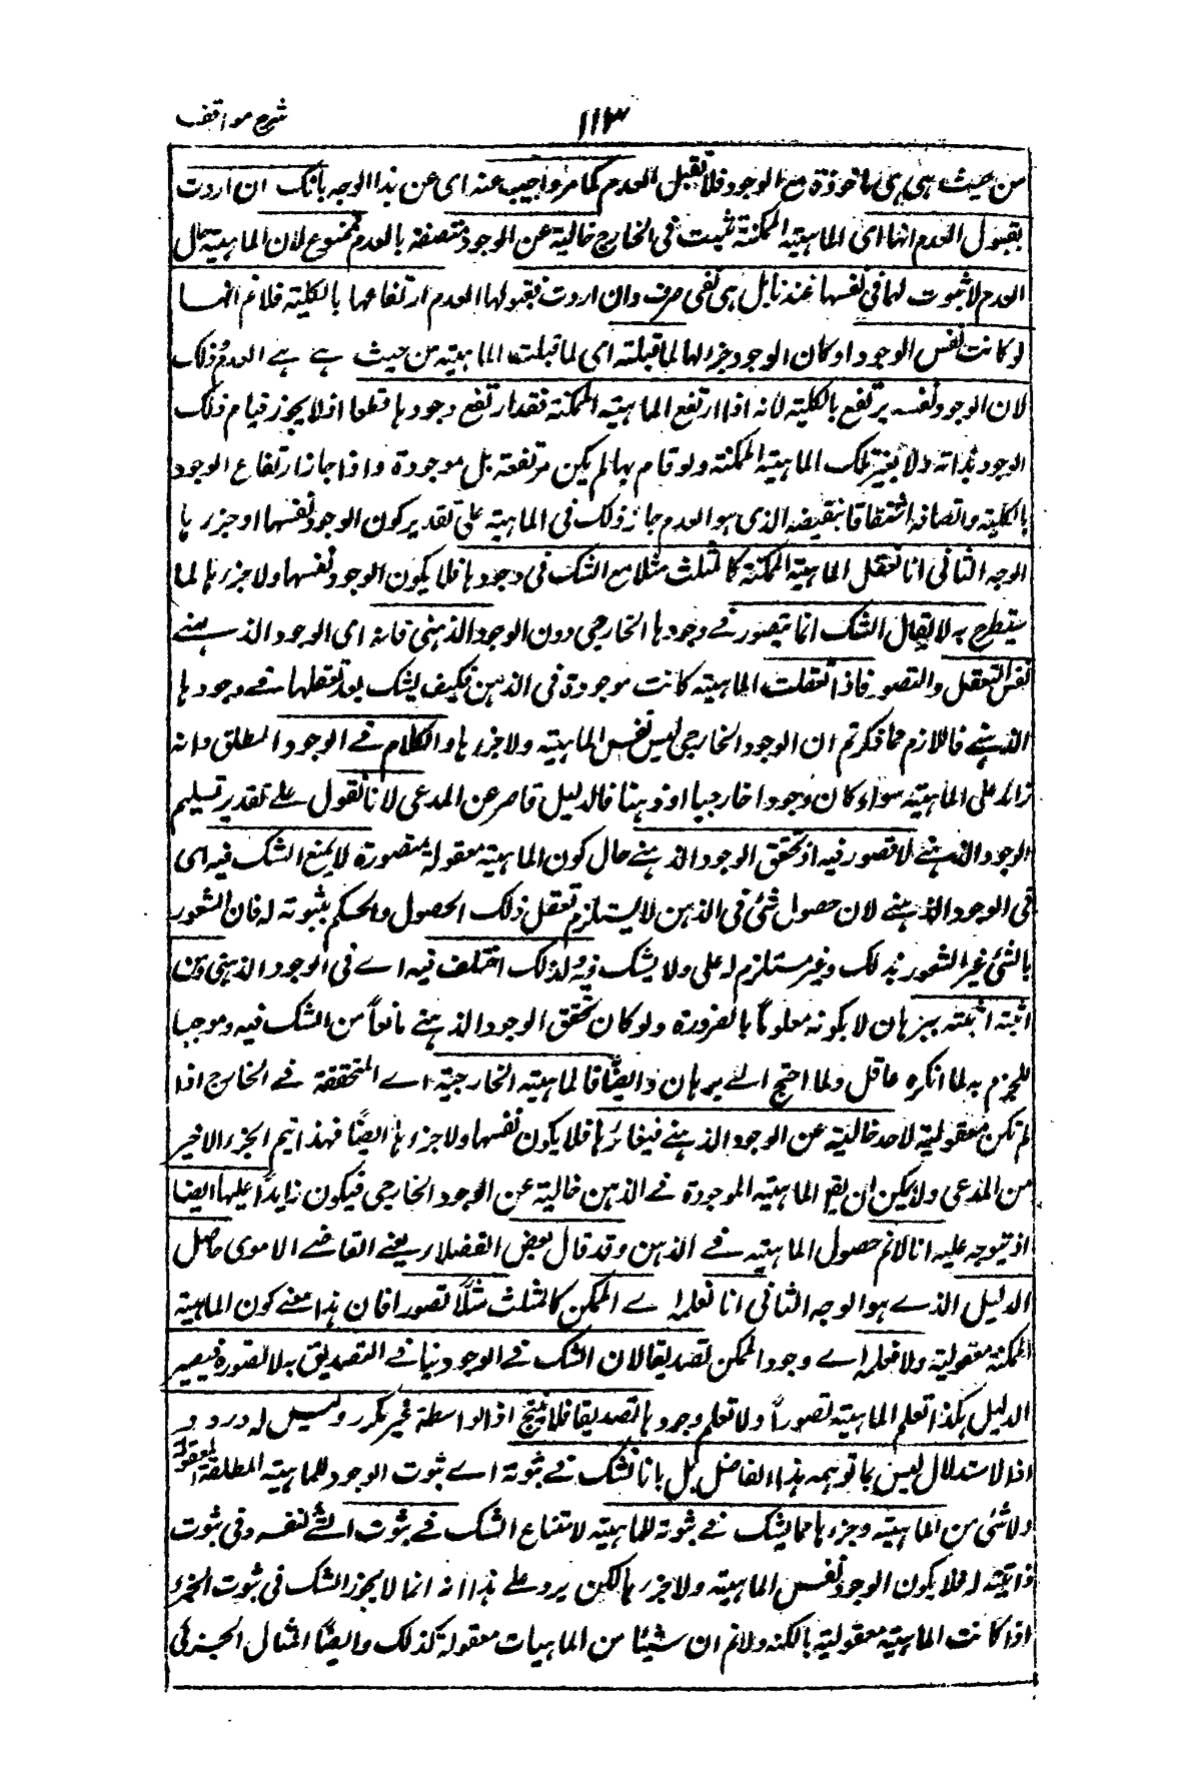 شرح مواقف
١١٣
من حيث هى هى ماخوذة مع الوجود فلا تقبل العدم كما مر واجيب عنه اى عن هذا الوجه بانك ان اردت
بقبول العدم انها اى الماهية الممكنة تثبت فى الخارج خالية عن الوجود متصفة بالعدم فممنوع لان الماهية حال
العدم لا ثبوت لها فى نفسها عندنا بل هى نفى صرف وان اردت بقبولها العدم ارتفاعها بالكلية فلا نم انها
لو كانت نفس الوجود او كان الوجود جزءا لها لما قبلته اى لما قبلت الماهية من حيث هے هے العدم وذلك
لان الوجود نفسه يرتفع بالكلية لانه اذا ارتفع الماهية الممكنة فقد ارتفع وجودها قطعا اذ لا يجوز قيام ذلك
الوجود بذاته ولا بغير تلك الماهية الممكنة ولو قام بها لم يكن مرتفعة بل موجودة واذا جاز ارتفاع الوجود
بالكلية واتصافه اشتقاقا بنقيضه الذى هو العدم جاز ذلك فى الماهية على تقدير كون الوجود نفسها او جزءها
الوجه الثانى انا نعقل الماهية الممكنة كالمثلث مثلا مع الشك فى وجودها فلا يكون الوجود نفسها ولا جزءها لما
سيتطرح به لا يقال الشك انما يتصور فے وجودها الخارجى دون الوجود الذهنى فانه اى الوجود الذهنے
نفس التعقل والتصور فاذا تعقلت الماهية كانت موجودة فى الذهن فكيف يشك بعد تعقلها فے وجودها
الذهنے فاللازم مما ذكرتم ان الوجود الخارجى ليس نفس الماهية ولا جزءها والكلام فے الوجود المطلق وانه
زائد على الماهية سواء كان وجودا خارجيا او ذهنا فالدليل قاصر عن المدعى لانا نقول علے تقدير تسليم
الوجود الذهنے لا قصور فيه اذ تحقق الوجود الذهنے حال كون الماهية معقولة متصورة لا يمنع الشك فيه اى
فى الوجود الذهنے لان حصول شئ فى الذهن لا يستلزم تعقل ذلك الحصول والحكم بثبوته له فان الشعور
بالشئ غير الشعور بذلك وغير مستلزم له على ولا يشك فيه ولذلك اختلف فيه اے فى الوجود الذهنى ومن
اثبته اثبته ببرهان لا بكونه معلوما بالضرورة ولو كان تحقق الوجود الذهنے مانعاً من الشك فيه وموجبا
للجزم به لما انكره عاقل ولما احتج الے برهان وايضًا فالماهية الخارجية اے المتحققة فے الخارج اذا
لم تكن معقولية لاحد خالية عن الوجود الذهنے فيغايرها فلا يكون نفسها ولا جزءها ايضًا فهذا تيم الجزء الاخير
من المدعى ولا يمكن ان يق الماهية الموجودة فے الذهن خالية عن الوجود الخارجى فيكون زايداً عليها ايضا
اذ يتوجه عليه انا لا نم حصول الماهية فے الذهن وقد قال بعض الفضلاء يعنے القاضے الاموى حاصل
الدليل الذے هو الوجه الثانى انا نعلم اے الممكن كالمثلث مثلاً تصورا فان هذا معنے كون الماهية
الممكنة معقولية ولا نعلم اے وجود الممكن تصديقا لان الشك فے الوجود ينافے التصديق به لا تصوره فيصير
الدليل هكذا نعلم الماهية تصوراً ولا نعلم وجودها تصديقا فلا ينتج اذ الواسطة غير مكرر وليس له ورود
اذ الاستدلال ليس بما توهمه هذا الفاضل بل بانا نشك فے ثبوته اے ثبوت الوجود للماهية المطلقة المعقولة
ولا شئ من الماهية وجزءها مما يشك فے ثبوته للماهية لامتناع الشك فے ثبوت الشے لنفسه وفى ثبوت
ذاتيته له فلا يكون الوجود نفس الماهية ولا جزءها لكن يرد علے هذا انه انما لا يجوز الشك فى ثبوت الجزء
اذا كانت الماهية معقولية بالكنه ولا نم ان شيئا من الماهيات معقولة كذلك وايضًا المثال الجزئى